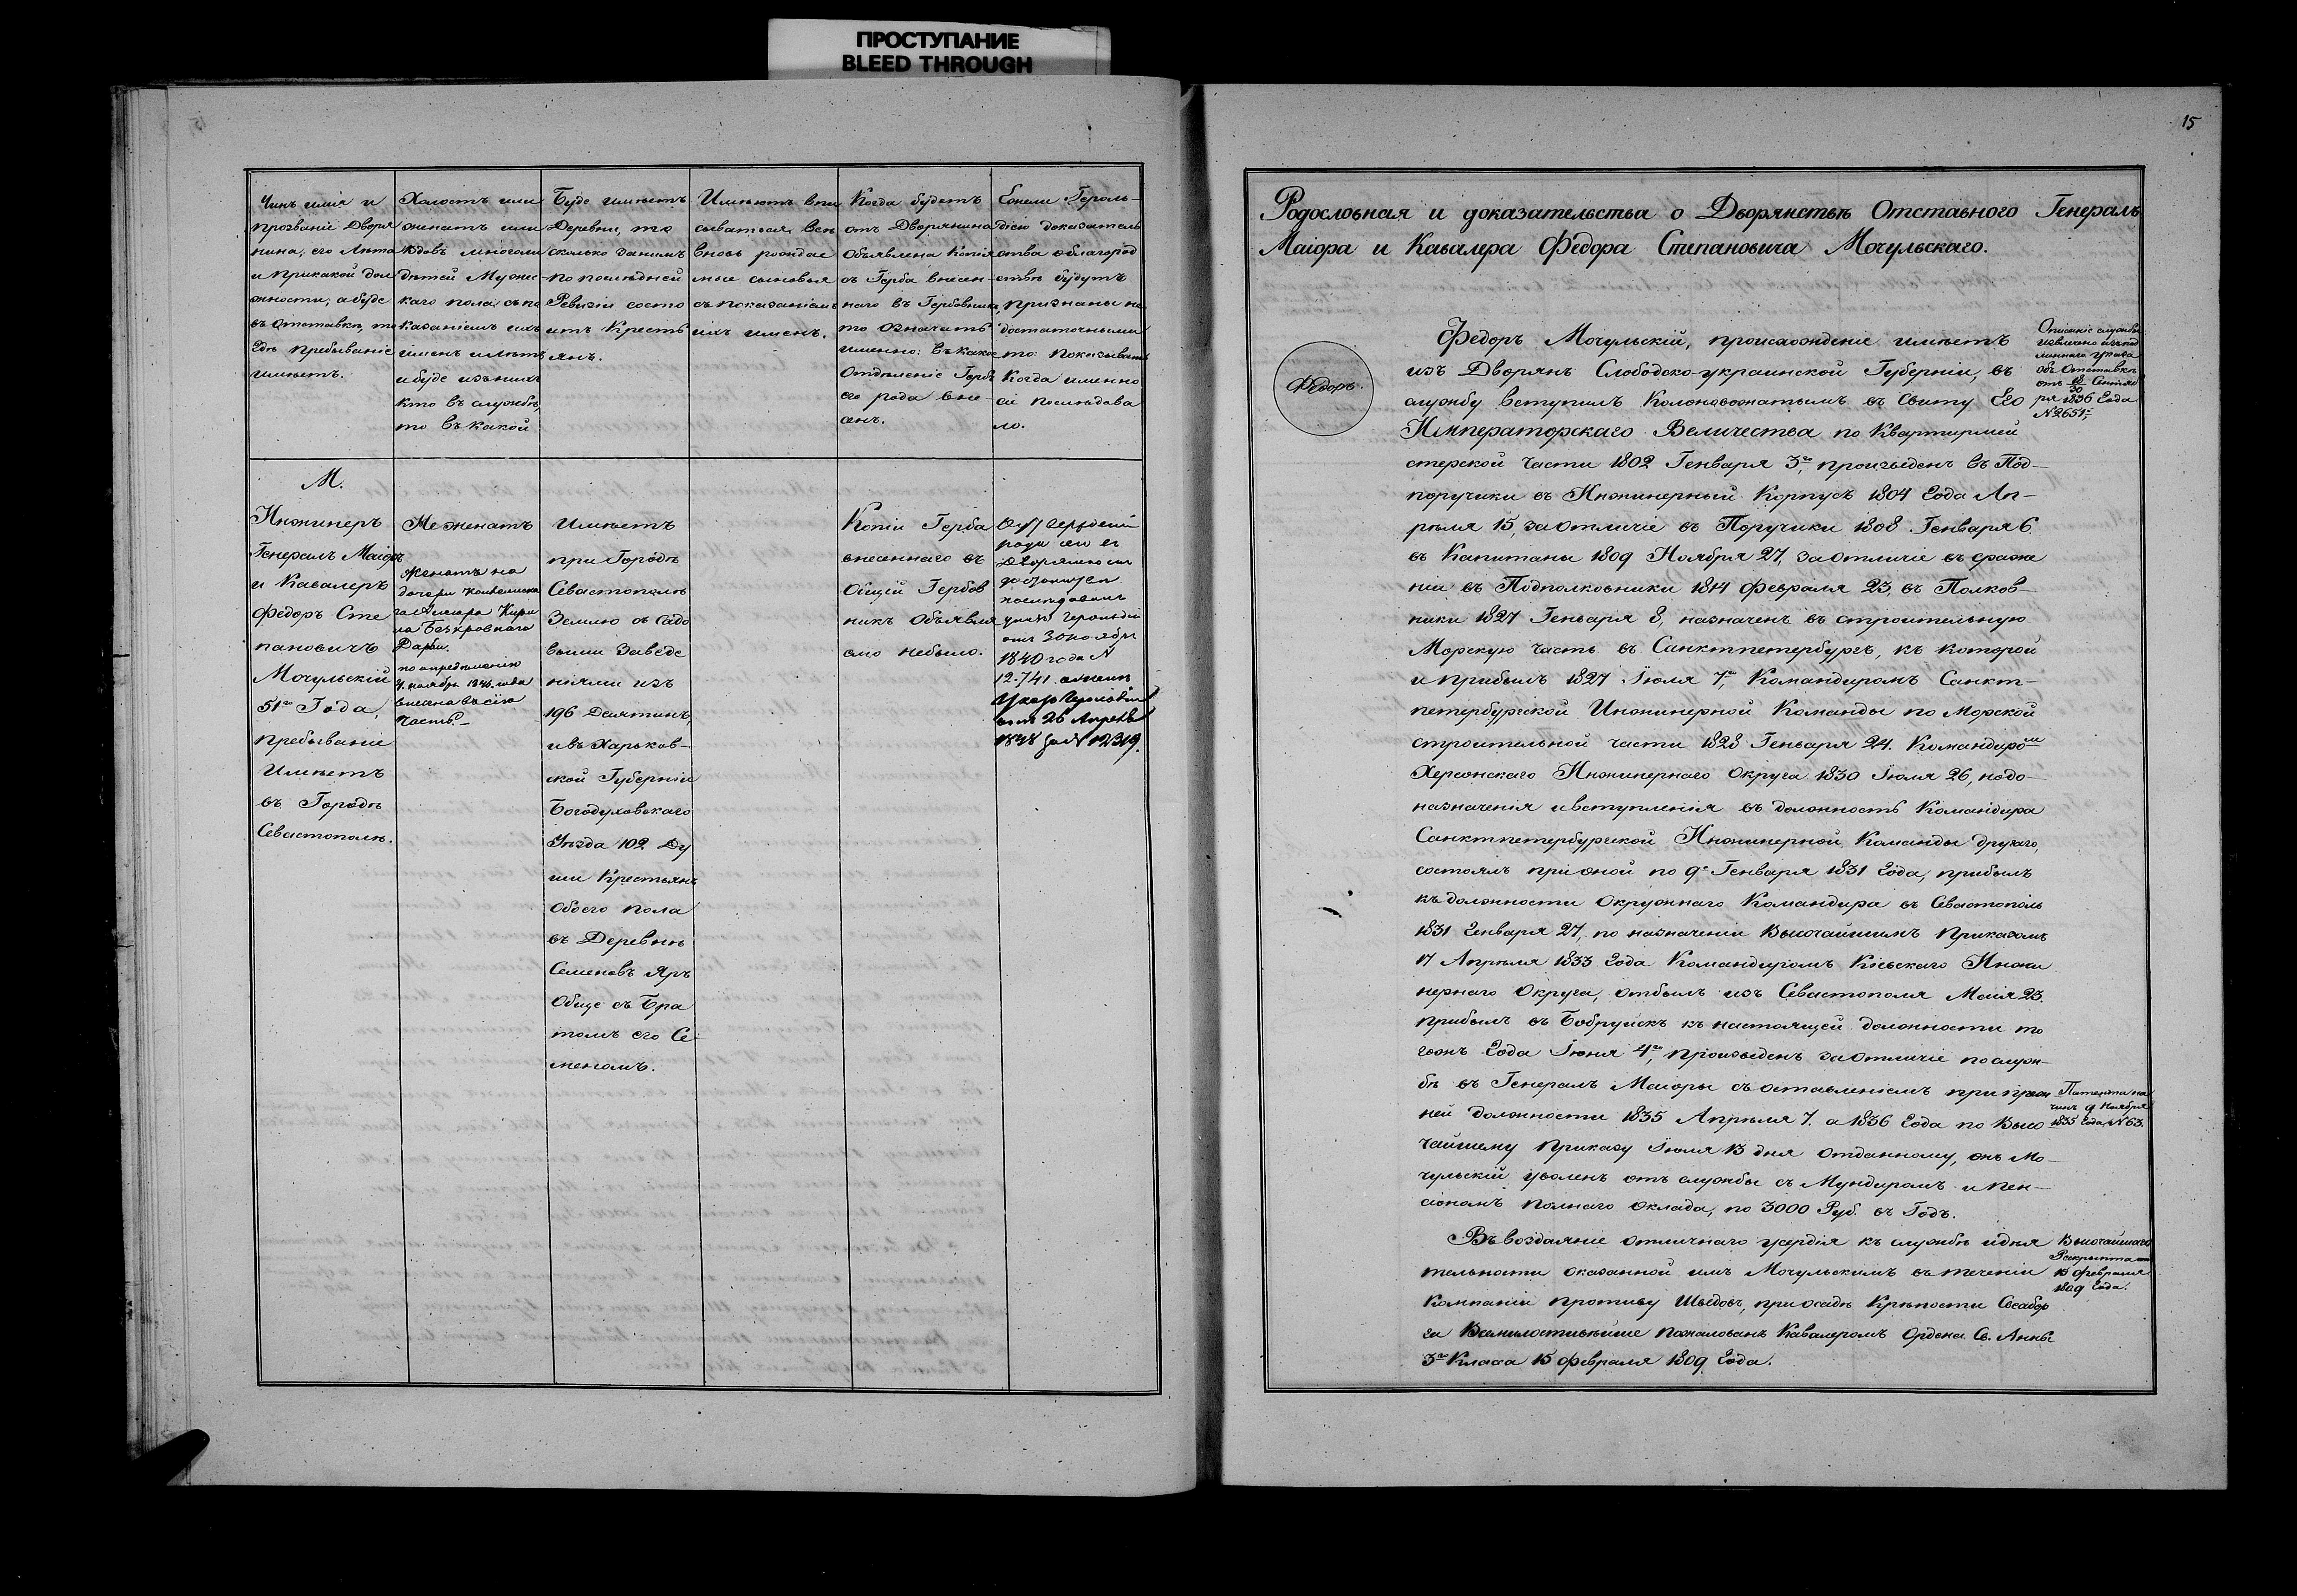 ПРОСТУПАНИЕ
BLEED THROUGH
15
Чинъ имя и
прозваніе Дворя
нина, его лѣта
и при какой дол
жности, а буде
въ отставкѣ, то
Гдѣ пребываніе
имѣетъ.
Холостъ или
женатъ или
Вдовъ многоли
дѣтей Мужес-
каго пола, съ по
казаніемъ ихъ
имянъ и лѣтъ
и буде изъ нихъ
кто въ службѣ,
то въ какой
Буде имѣетъ
Деревни, то
сколько за нимъ
по послѣдней
Ревизіи состо
итъ Кресть
янъ.
Имѣютъ впи
сываться всѣ
вновь рождае
мые сыновья
съ показаніемъ
ихъ именъ.
Когда будетъ
отъ Дворянина
Объявлена копія
съ Герба внесен-
наго въ Гербовникъ
то означить
именно: въ какое
Отдѣленіе Гербъ
его рода вне-
сенъ.
Ежели Героль-
діею доказатель
ства о благород
ствѣ будутъ
признаны не
достаточными
то показывать
Когда именно
сіе послѣдова
ло.
М.
Инжинеръ
Генералъ Маіоръ
и Кавалеръ
Федоръ Сте
пановичъ
Мочульскій
51го Года,
пребываніе
Имѣетъ
въ Городѣ
Севастополѣ.
Не женатъ
Женатъ на
дочери
Дарьи.
по опредѣленію
4. ноября 1843. года
внесена въ сію
часть.
Имѣетъ
при Городѣ
Севастополѣ
Землю съ садо
выми заведе
ніями изъ
196 Десятинъ,
и въ Харьков-
ской Губерніи
Богодуховскаго
Уѣзда 102 Ду
ши Крестьянъ
обоего пола
въ Деревнѣ
Семеновъ Яръ
Обще съ Бра
томъ его Се-
меномъ.
Копіи Герба
внесеннаго въ
Общій Гербов
никъ Объявля
емо небыло.
рода его въ
Дворянство
послѣдовалъ
указъ Герольдіи
отъ 30 ноября
1840 года N
12.741.
Указъ Герольдіи
отъ 26 Апрѣля
N 12319.
Родословная и доказательства о Дворянствѣ Отставного Генералъ
Маіора и Кавалера Федора Степановича Мочульскаго.
Федоръ.
Федоръ Мочульскій, происхожденіе имѣетъ
изъ Дворянъ Слободско-украинской Губерніи, въ
службу вступилъ Колоновожатымъ въ Свиту Его
Императорскаго Величества по Квартирмей
стерской части 1802 Генваря 3го, произведенъ въ Под-
поручики въ Инжинерный Корпусъ 1804 Года Ап-
рѣля 15, за отличіе въ Поручики 1808 Генваря 6.
въ Капитаны 1809 Ноября 27, за отличіе въ сраже
ніи въ Подполковники 1814 Февраля 23, въ Полков-
ники 1827 Генваря 8, назначенъ въ строительную
Морскую часть въ Санктпетербургѣ, къ которой
и прибылъ 1827 Іюля 7го, Командиромъ Санкт-
петербургской Инжинерной Команды по Морской
строительной части 1828 Генваря 24. Командиромъ
Херсонскаго Инжинернаго Округа 1830 Іюля 26, но до
назначенія и вступленія въ должность Командира
Санктпетербургской Инжинерной Команды другаго,
состоялъ при оной по 9е Генваря 1831 Года, прибылъ
къ должности Окружнаго Командира въ Севастополь
1831 Генваря 27, по назначеніи Высочайшимъ приказомъ
17 Апрѣля 1833 Года Командиромъ Кіевскаго Инжи
нернаго Округа, отбылъ изъ Севастополя Маія 23.
прибылъ въ Бобруйскъ къ настоящей должности то
гожъ Года Іюня 4го, произведенъ за отличіе по служ-
бѣ въ Генералъ Маіоры съ оставленіемъ при преж
ней должности 1835 Апрѣля 7. а 1836 Года по Высо
чайшему приказу Іюля 13 дня отданному, онъ Мо-
чульскій уволенъ отъ службы съ Мундиромъ и пен-
сіономъ полнаго оклада, по 3000 Руб. въ Годъ.
Въ воздаяніе отличнаго усердія къ службѣ и дѣя
тельности оказанной имъ Мочульскимъ въ теченіи
Компаніи противу Шведовъ, при осадѣ Крѣпости Свеабор
га Всемилостивѣйше пожалованъ Кавалеромъ Ордена Св. Анны
3го Класса 15 Февраля 1809 Года.
Описаніе службы
извлечено изъ под
линнаго указа
объ Отставкѣ
отъ 18/30 Сентяб
ря 1836 Года
N 2651;
Патента на
чинъ 9 Ноября
1835 Года, N 63.
Высочайшаго
Рескрипта отъ
15 Февраля
1809 Года.